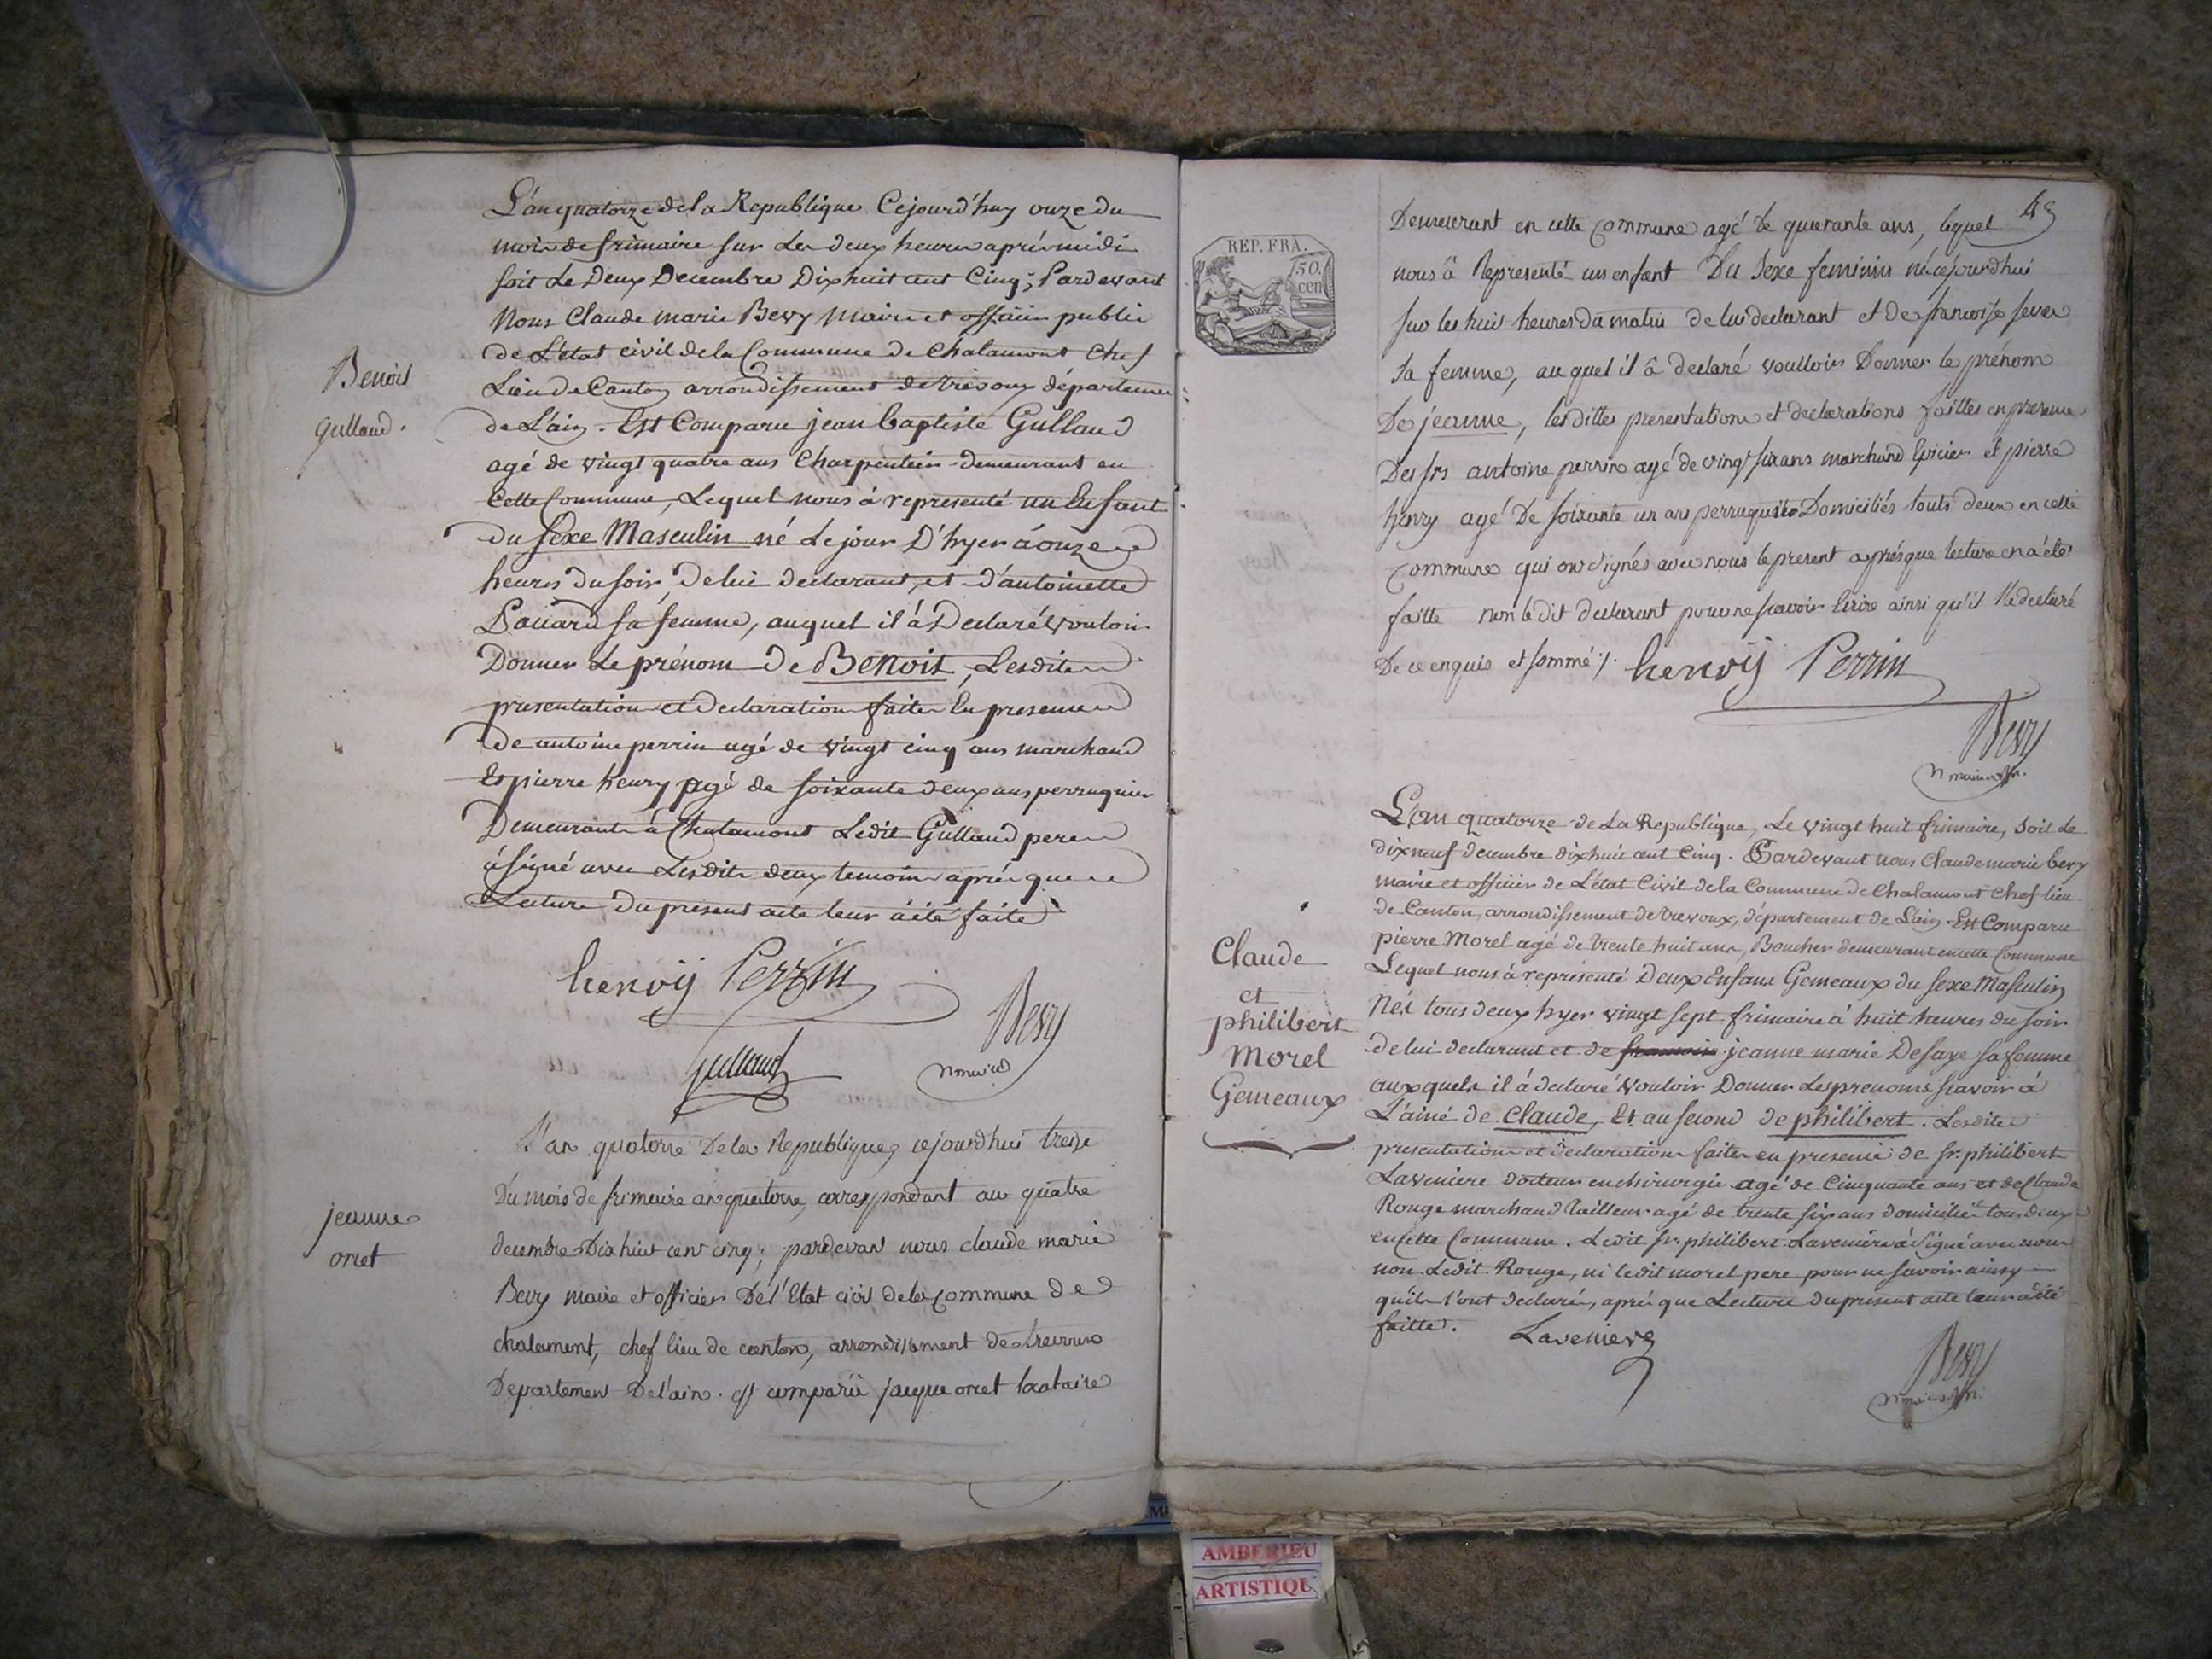 L'an quatorze de la Republique Cejourd'huy onze du
mois de frimaire sur les deux heures aprés midi
soit le Deux Decembre Dix huit cent Cinq; Pardevant
Nous Claude marie Bevy Maire et officier public
de L'état civil de la Commune de Chalamont Chef
Lieu de Canton arrondissement de trévoux départemen
de L'ain. Est Comparu jean baptiste Gulland
agé de vingt quatre ans Charpentier demeurant en
Cette Commune, Lequel nous à representé un Enfant
du Sexe Masculin né Le jour D'hyer à onze
heures du soir de lui declarant, et d'antoinette
sa femme, auquel il à Declaré vouloir
Donner le prénom De Benoit, Lesdites
presentation et declaration faites En presence
de antoine perrin agé de vingt cinq ans marchand
Et pierre henry agé de soixante deux ans perruquier
Demeurants à Chalamont Ledit Gulland pere
à signé avec Lesdits deux temoins aprés que
Lecture du present acte leur à été faite
Benoit
Gulland.
henrÿ Perrin
Gulland
Bevy
L'an quatorze De la Republique, cejourdhui treize
Du mois de frimaire an quatorze, correspondant au quatre
decembre Dix huit cent cinq; pardevant nous claude marie
Bevy maire et officier De l'Etat civil de la commune de
chalamont, chef lieu de canton, arrondissement de trevoux
Departement De l'ain. est comparu jacque oriet locataire
jeanne
oriet
REP. FRA.
50.
cen
Demeurant en cette commune agé de quarante ans, lequel
nous à Representé un enfant Du Sexe feminin né cejourdhui
sur les huit heures du matin de lui declarant et de francoise
sa femme, auquel il à declaré voulloir Donner le prénom
De jeanne, lesdittes presentations et declarations faittes en presence
Des srs antoine perrin agé de vingt six ans marchand Epicier et pierre
henry agé De soixante un ans perruquier Domiciliés touts deux en cette
commune qui ont signés avec nous le present aprés que lecture en a été
faitte non le dit declarant pour ne scavoir Ecrire ainsi qu'il l'a declaré
De ce enquis et sommé ./. henrÿ Perrin
Bevy
L'an quatorze de La Republique, Le vingt huit frimaire, soit Le
dix neuf decembre dix huit cent Cinq. Pardevant nous Claude marie bevy
maire et officier de L'état Civil de la Commune de Chalamont Chef lieu
de Canton, arrondissement de trevoux, département de L'ain. Est Comparu
pierre Morel agé de trente huit ans, Boucher demeurant en cette Commune
Lequel nous à représenté Deux Enfans Gemeaux du Sexe Masculin
Nés tous deux hyer vingt sept frimaire à huit heures du soir
de lui declarant et de francoise jeanne marie Desaye sa femme
auxquels il à declaré vouloir Donner Les prenoms scavoir à
L'ainé de Claude, Et au second de philibert. Lesdites
presentation et declaration faites en presence de sr. philibert
Laveniere docteur en chirurgie agé de Cinquante ans et de Claude
Rouge marchand Tailleur agé de trente six ans domiciliés tous deux
en Cette Commune. Ledit sr. philibert Laveniere à signé avec nous
non Ledit Rouge, ni ledit morel pere pour ne savoir ainsy
qu'ils l'ont declaré, aprés que Lecture du present acte leur a été
faitte.
Laveniere
Bevy
Claude
et
philibert
Morel
Gemeaux
AMBERIEU
ARTISTIQU